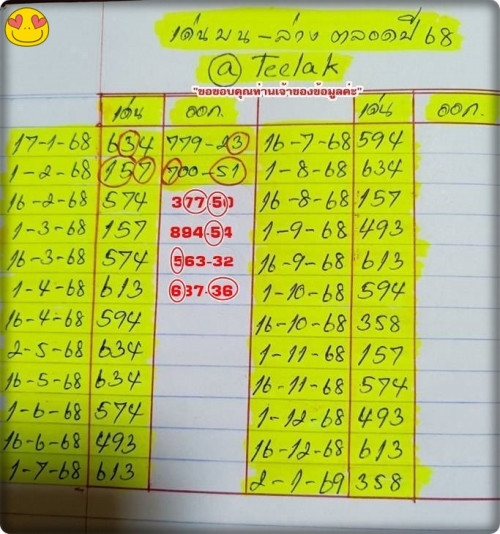 เด่นบน-ล่าง ตลอดปี 68
@ Teelak
"ขอขอบคุณท่านเจ้าของข้อมูลค่ะ"
เด่น ออก. เด่น ออก.
17-1-68 634 779-23 16-7-68 594
1-2-68 157 700-51 1-8-68 634
16-2-68 574 377-50 16-8-68 157
1-3-68 157 894-54 1-9-68 493
16-3-68 574 563-32 16-9-68 613
1-4-68 613 637-36 1-10-68 594
16-4-68 594 16-10-68 358
2-5-68 634 1-11-68 157
16-5-68 634 16-11-68 574
1-6-68 574 1-12-68 493
16-6-68 493 16-12-68 613
1-7-68 613 2-1-69 358